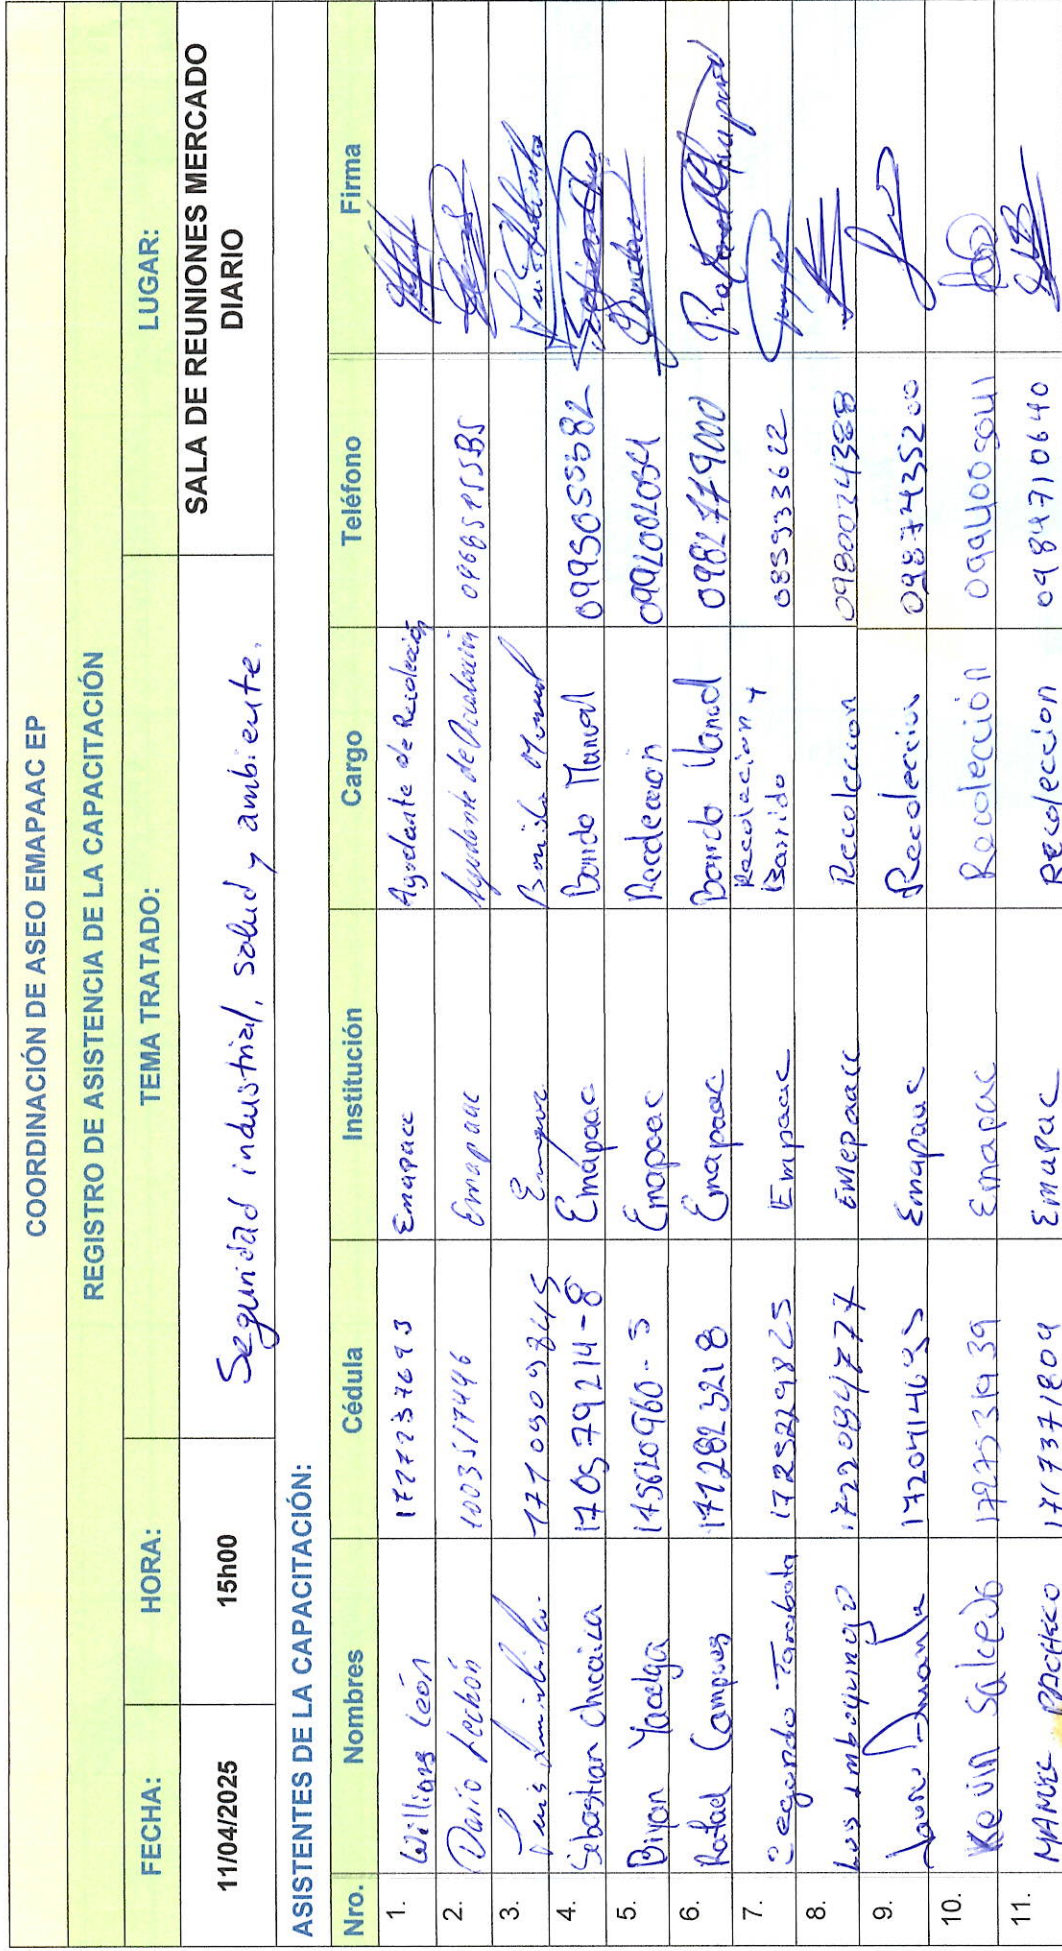 COORDINACIÓN DE ASEO EMAPAAC EP
REGISTRO DE ASISTENCIA DE LA CAPACITACIÓN
FECHA: HORA: TEMA TRATADO: LUGAR:
11/04/2025 15h00 Seguridad industrial, salud y ambiente. SALA DE REUNIONES MERCADO
DIARIO
ASISTENTES DE LA CAPACITACIÓN:
Nro. Nombres Cédula Institución Cargo Teléfono Firma
1. Williams León 1727237693 Emapacc Ayudante de Recolección
2. Dario Lechón 1003517446 Emapaac Ayudante de
3. Luis
4. Sebastian Chicaiza 170579214-8 Emapaac Barrido Manual 0995055582
5. Biyan Yacelga 175620960-5 Emapaac Recoleccion 0992002054
6. Rafael Campues 1712823218 Emapaac Barrido Manual 0982779000
7. Segundo 1725229825 Empaac Recoleccion y
Barrido 085933622
8. Luis Imbaquingo 1722084777 EMEPaacc Recoleccion 0980024388
9. 1720414695 Emapaac Recoleccion 0987435200
10. Kevin Salcedo 1727531939 Emapac Recolección
11. MANUEL PACHECO 1717371804 Emapac Recoleccion 0984710640